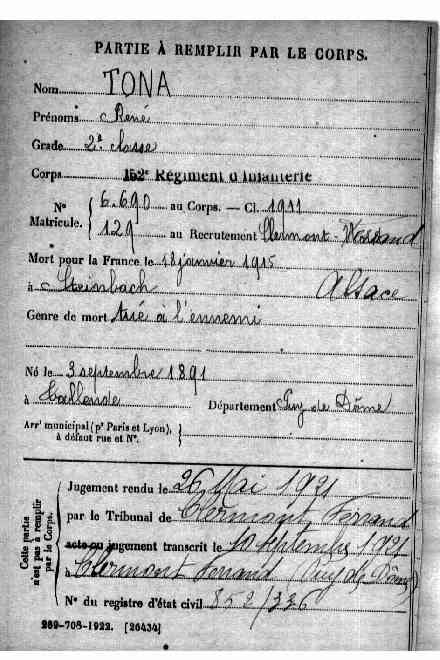 PARTIE À REMPLIR PAR LE CORPS.
Nom TONA
Prénoms René
Grade 2e classe
Corps 152e Régiment d'Infanterie
No 6.690 au Corps. — Cl. 1911
Matricule. 129 au Recrutement Clermont-Ferrand
Mort pour la France le 18 janvier 1915
à Steinbach Alsace
Genre de mort tué à l'ennemi
Né le 3 septembre 1891
à Tallende Département Puy de Dôme
Arrt municipal (pr Paris et Lyon),
à défaut rue et No.
Cette partie
n'est pas à remplir
par le Corps.
Jugement rendu le 26 Mai 1921
par le Tribunal de Clermont Ferrand
acte ou jugement transcrit le 10 septembre 1921
à Clermont Ferrand (Puy de Dôme)
No du registre d'état civil 852/336
269-708-1922. [26434]